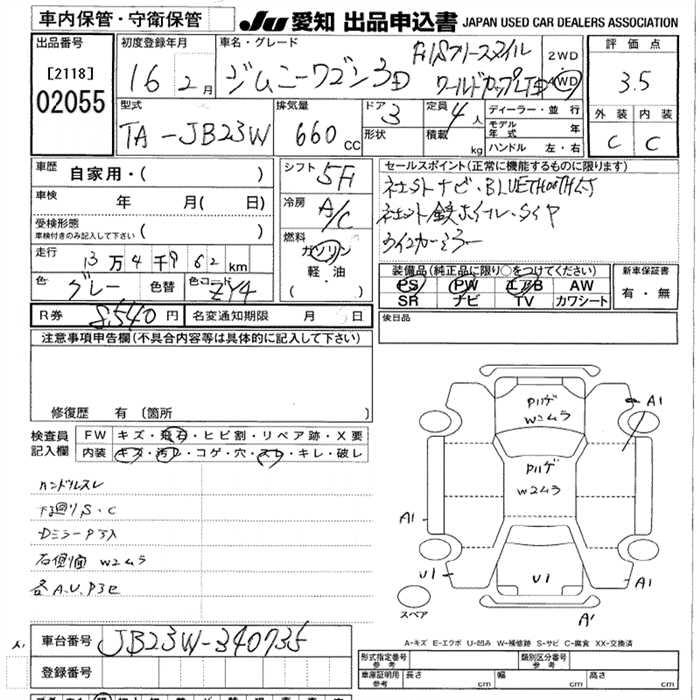 車内保管・守衛保管
JU 愛知 出品申込書 JAPAN USED CAR DEALERS ASSOCIATION
出品番号
[2118]
02055
初度登録年月
16 2月
車名・グレード
ジムニーワゴン 3D
FISフリースタイル
ワールドカップLTD
2WD
4WD
評価点
3.5
外装 内装
C C
型式
TA-JB23W
排気量
660 CC
ドア 3
形状
定員 4人
積載 kg
ディーラー・並行
モデル年式 年
ハンドル 左・右
車歴
自家用・( )
車検
年 月( 日)
受検形態
車検付きのみ記入して下さい ( )
走行
13万4千962km
色 グレー 色替 色コード ZY4
シフト
5F
冷房
A/C
燃料
ガソリン
軽・油
( ・ )
セールスポイント(正常に機能するものに限ります)
社外ナビ・BLUETOOTH付
社外鉄ホイル・タイヤ
ウインカーミラー
装備品(純正品に限り○をつけてください)
PS PW エアB AW
SR ナビ TV カワシート
新車保証書
有・無
R券 8,540円 名変通知期限 月 日
後日品
注意事項申告欄(不具合内容等は具体的に記入して下さい)
修復歴 有 [箇所 ]
検査員
記入欄
FW キズ・飛石・ヒビ割・リペア跡・X要
内装 キズ・汚レ・コゲ・穴・スレ・キレ・破レ
ハンドルスレ
下廻りS・C
Dミラー P3入
右側面 W2ムラ
各A.U.P3セ
Pハゲ
W2ムラ
A1
Pハゲ
W2ムラ
A1
U1
U1
A1
A'
スペア
A-キズ E-エクボ U-凹み W-補修跡 S-サビ C-腐食 XX-交換済
車台番号 JB23W-340735
登録番号
形式指定番号
参考
類別区分番号
参考
車庫証明用
参考
長さ cm 幅 cm 高さ cm